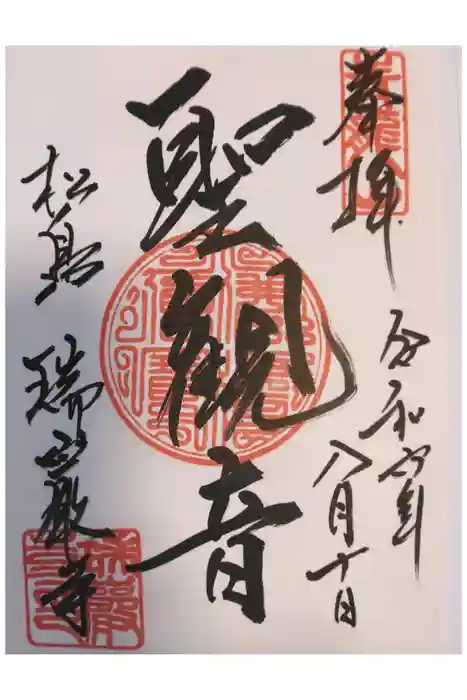 奉拝
令和六年
八月十日
聖観音
松島 瑞巌寺